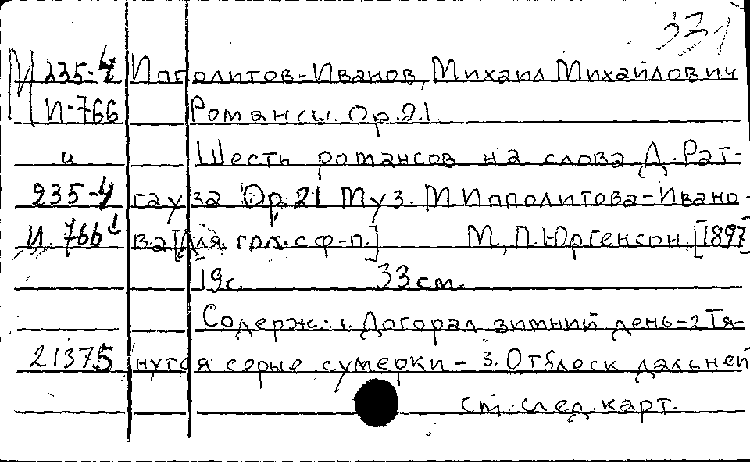 331
М 235-4 Ипполитов-Иванов, Михаил Михайлович
И-766 Романсы. Ор.21.
и Шесть романсов на слова Д. Рат-
235-4 гауза Ор.21 Муз. М Ипполитова-Ивано-
И. 766 ва [Для гол. с ф-п.] М., П. Юргенсон, [1897]
19с. 33см.
Содерж.: 1. Догорал зимний день - 2 Тя-
21375 нутся серые сумерки - 3. Отблеск дальней
см. след. карт.